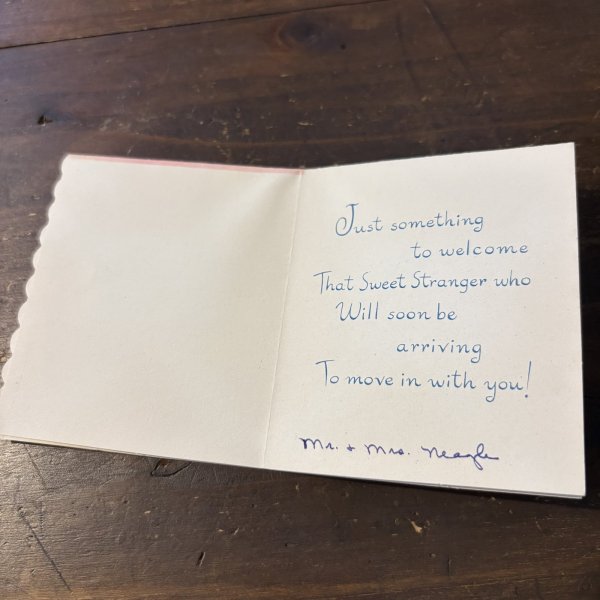 Just something
to welcome
That Sweet Stranger who
Will soon be
arriving
To move in with you!
Mr. + Mrs. Neagle